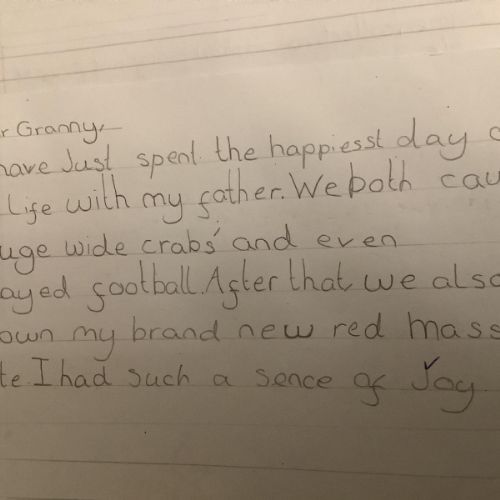 r Granny,
have Just spent the happiesst day o
Life with my father. We both cau
uge wide crabs and even
ayed football. After that we also
own my brand new red mass
te. I had such a sence of Joy